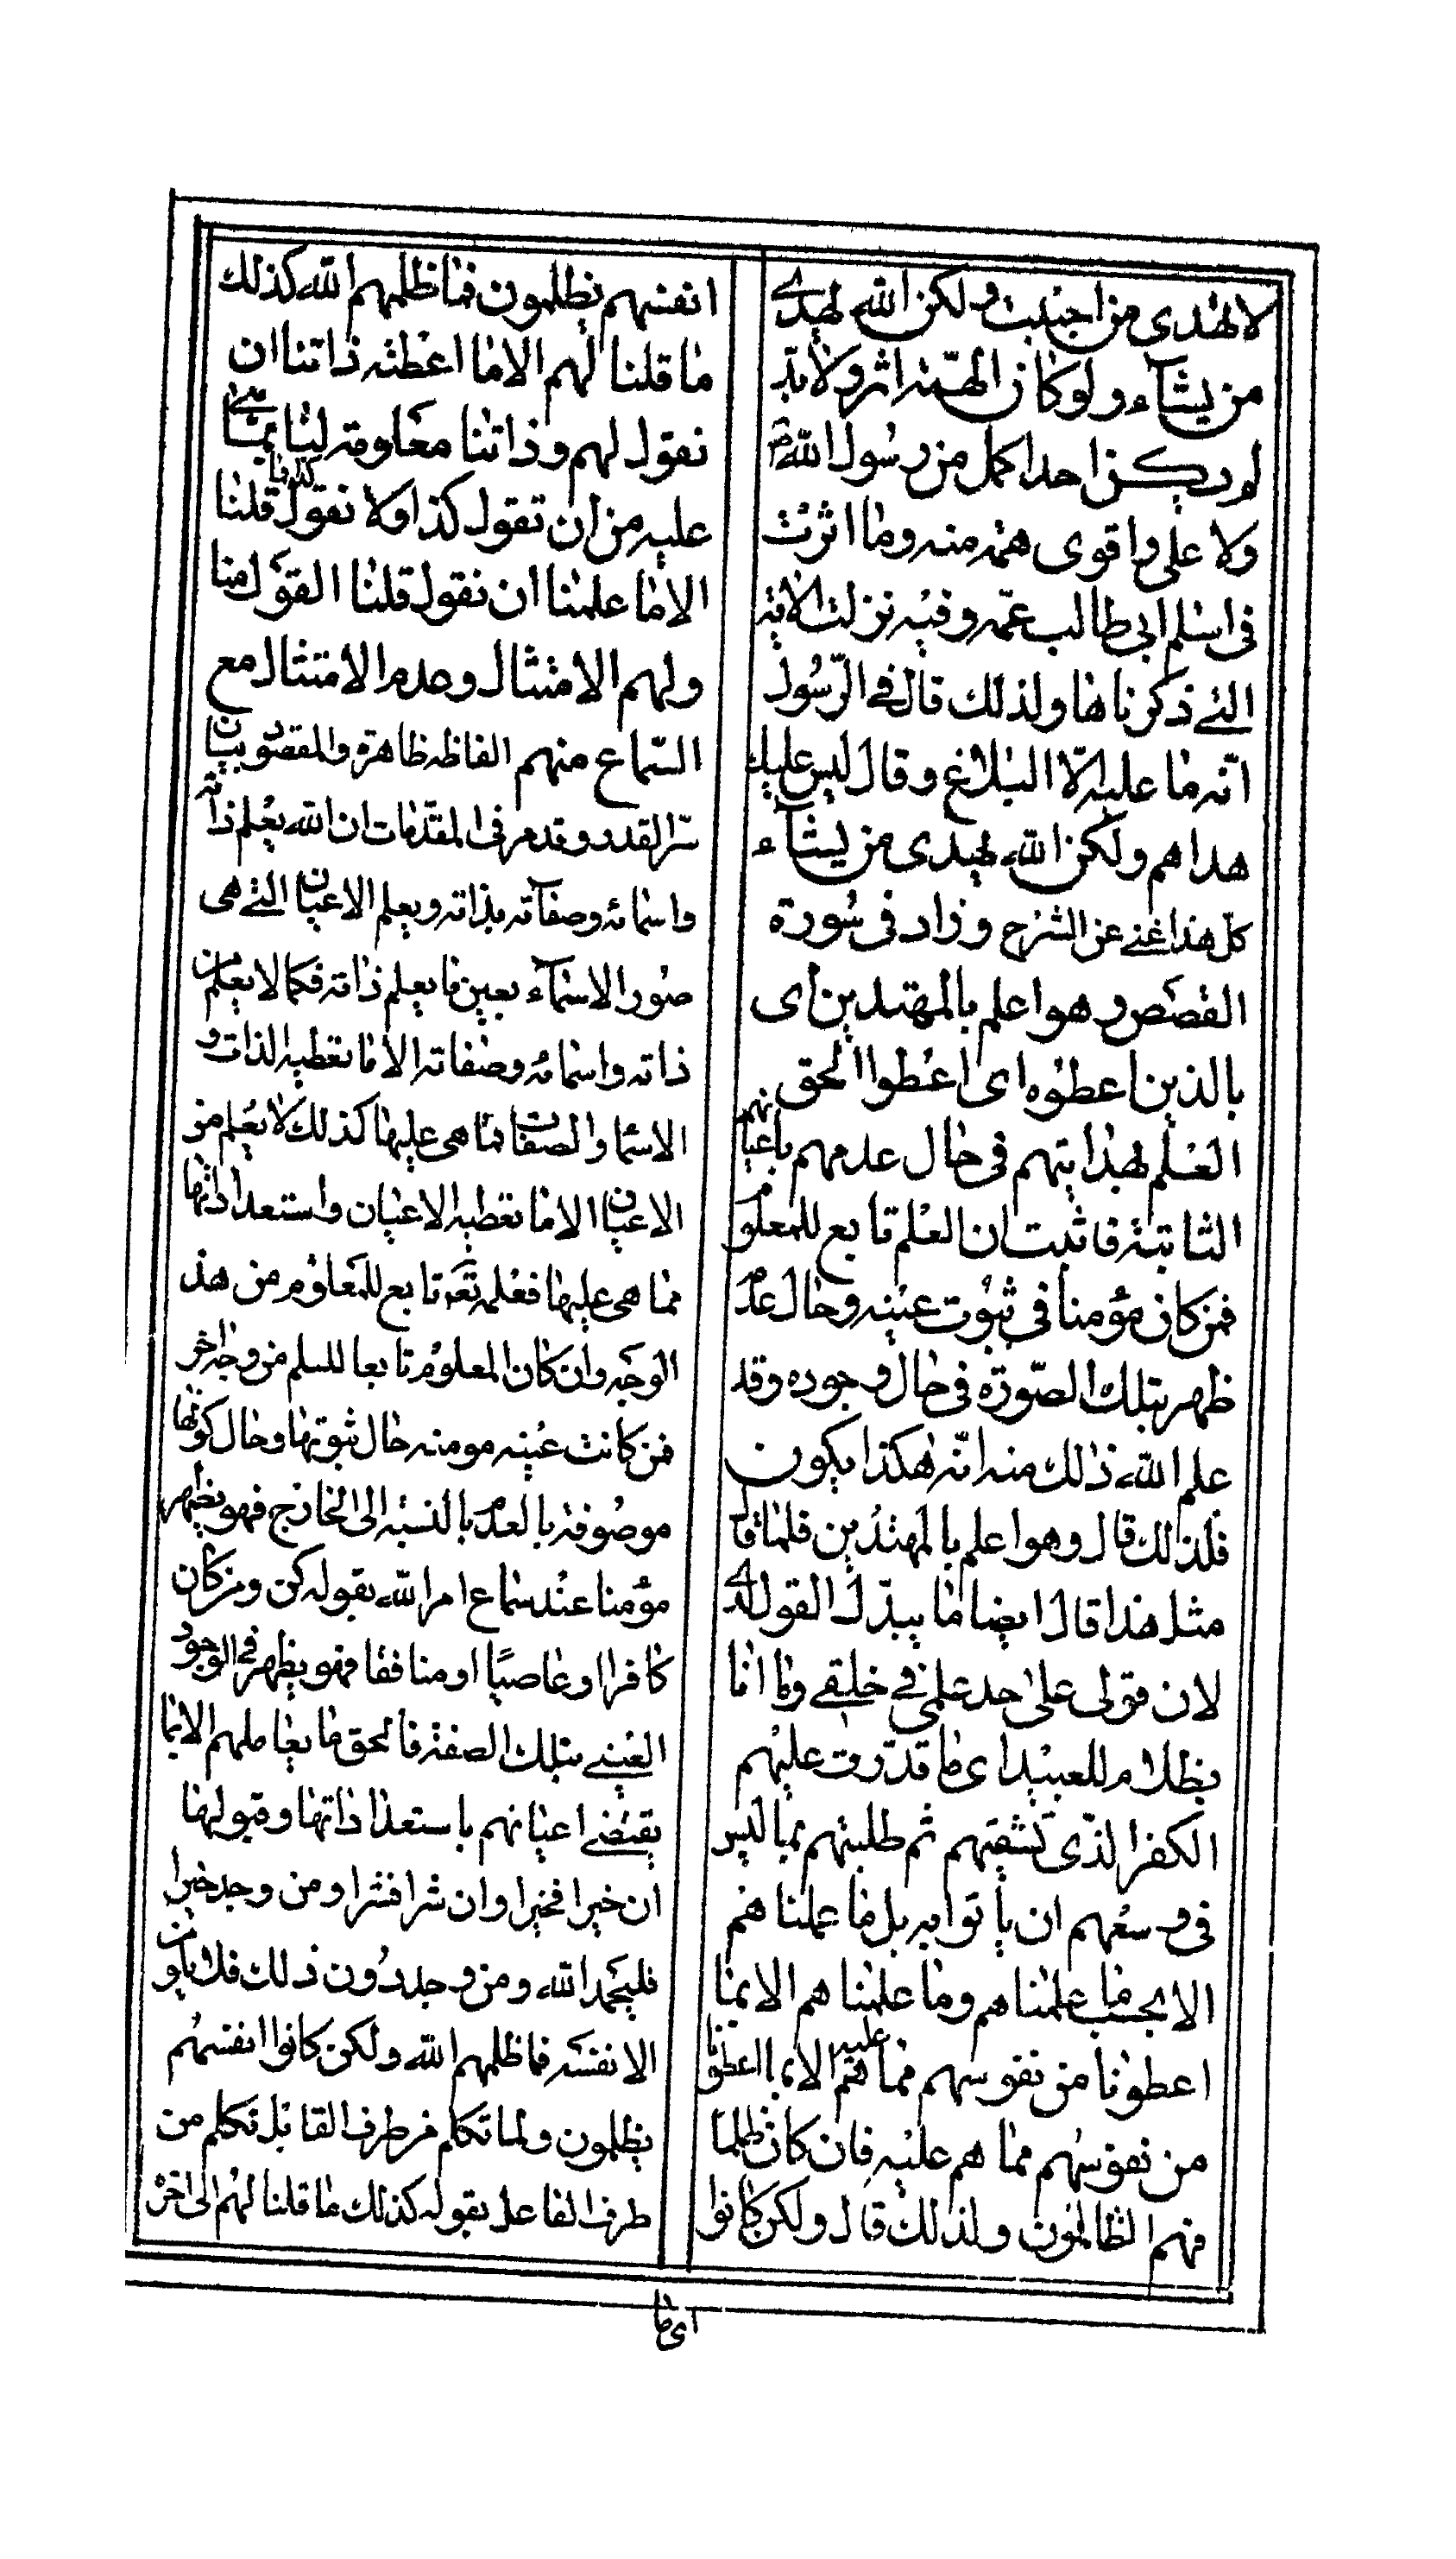 لا تهدى من احببت ولكن الله يهدى
من يشاء ولو كان للهمّة اثر ولا بدّ
لم يكن احد اكمل من رسول الله
ولا على واقوى همّة منه وما اثرت
فى اسلم ابى طالب عمّه وفيه نزلت الاية
التى ذكرناها ولذلك قال فى الرّسول
انّه ما عليه الّا البلاغ وقال ليس عليك
هداهم ولكن الله يهدى من يشاء
كل هذا غنى عن الشرح وزاد فى سورة
القصص وهو اعلم بالمهتدين اى
بالذين اعطوه اى اعطوا الحق
العلم بهدايتهم فى حال عدمهم باعيانهم
الثابتة فاثبت ان العلم تابع للمعلوم
فمن كان مؤمنا فى ثبوت عينه وحال عدمه
ظهر بتلك الصّورة فى حال وجوده وقد
علم الله ذلك منه انّه هكذا يكون
فلذلك قال وهو اعلم بالمهتدين فلما قال
مثل هذا قال ايضا ما يبدّل القول لدى
لان قولى على حد علمى فى خلقى وما انا
بظلام للعبيد اى ما قدّرت عليهم
الكفر الذّى يشقيهم ثم طلبتهم بما ليس
فى وسعهم ان ياتوا به بل ما عملنا هم
الا بحسب ما علمناهم وما علمنا هم الا بما
اعطونا من نفوسهم مما هم عليه الا بما اعطونا
من نفوسهم مما هم عليه فان كان ظلما
فهم الظالمون ولذلك قال ولكن كانوا
انفسهم يظلمون فما ظلمهم الله كذلك
ما قلنا لهم الا ما اعطته ذاتنا ان
نقول لهم وذاتنا معلومة لنا بما هى
عليه من ان تقول كذا ولا نقول كذا فما قلنا
الا ما علمنا ان نقول قلنا القول منا
ولهم الامتثال وعدم الامتثال مع
السّماع منهم الفاظه ظاهرة والمقصود بيان
سرّ القدر وقد مر فى المقدّمات ان الله يعلم ذاته
واسمائه وصفاته بذاته ويعلم الاعيان التى هى
صور الاسماء بعين ما يعلم ذاته فكما لا يعلم من
ذاته واسمائه وصفاته الا ما تعطيه الذات و
الاسما والصفات مما هى عليها كذلك لا يعلم من
الاعيان الا ما تعطيه الاعيان واستعداداتها
مما هى عليها فعلمه تع تابع للمعلوم من هذ
الوجه وان كان المعلوم تابعا للسلم من وجه اخر
فمن كانت عينه مومنه حال ثبوتها وحال كونها
موصوفة بالعدم بالنسبه الى الخارج فهو يظهر
مؤمنا عند سماع امر الله بقوله كن ومن كان
كافرا او عاصيًا او منافقا فهو يظهر فى الوجود
العينى بتلك الصفة فالحق ما يعاملهم الا بما
يقتضى اعيانهم باستعداداتها وقبولها
ان خيرا فخيرا وان شرا فشرا ومن وجد خيرا
فليحمد الله ومن وجد دون ذلك فلا يلومن
الا نفسه فما ظلمهم الله ولكن كانوا انفسهم
يظلمون ولما تكلم من طرف القابل تكلم من
طرف الفاعل بقوله كذلك ما قلنا لهم الى اخره
اى ما